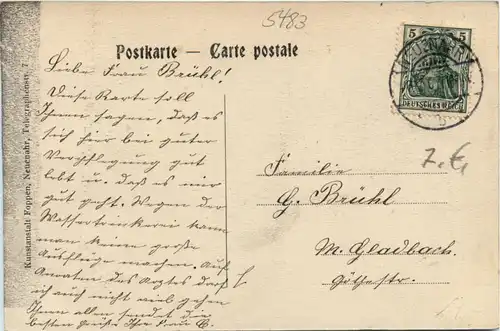 5483
Postkarte — Carte postale
Liebe Frau Brühl!
Diese Karte soll
Ihnen sagen, daß es
sich hier bei guter
Verpflegung gut
lebt u. daß es mir
gut geht. Wegen der
Wassertrinkerei kann
man keine große
Ausflüge machen. Auf
des Arztes darf
ich auch nicht viel gehen
Ihnen allen sendet die
besten Grüße Ihre Frau B.
Kunstanstalt Foppen, Neuenahr, Telegraphenstr. 7
5 5
DEUTSCHES REICH
7.€
Familie
G. Brühl
M. Gladbach.
Göthestr.